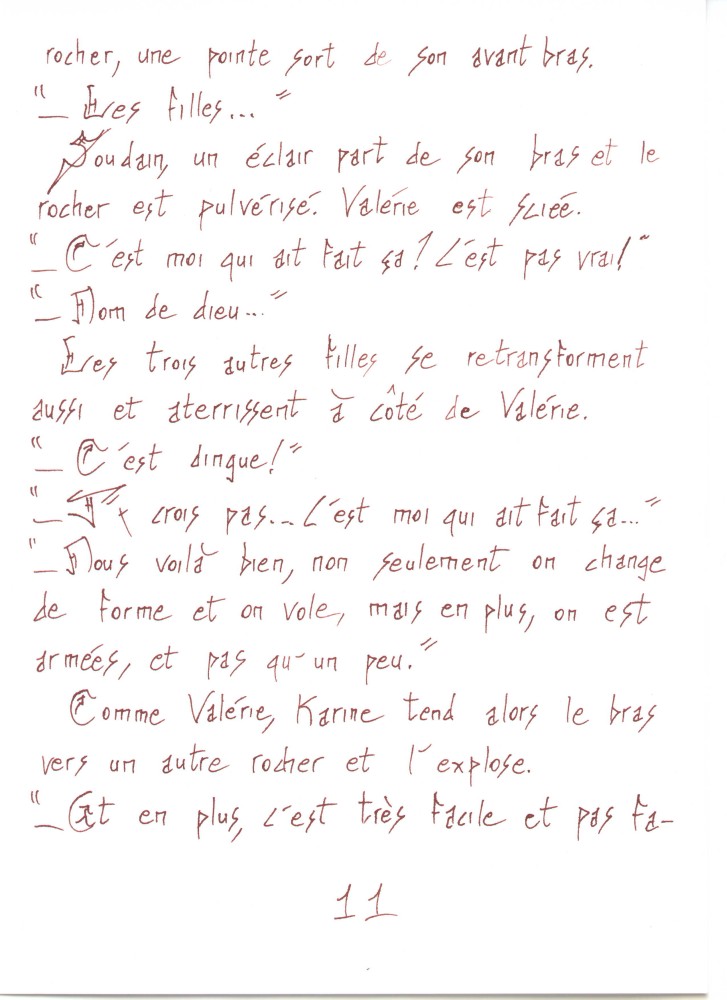 rocher, une pointe sort de son avant bras.
"_ Les filles... "
Soudain, un éclair part de son bras et le
rocher est pulvérisé. Valérie est sciée.
"_ C'est moi qui ait fait ça? C'est pas vrai!"
"_ Nom de dieu..."
Les trois autres filles se retransforment
aussi et aterrissent à côté de Valérie.
"_ C'est dingue!"
"_ J'y crois pas... C'est moi qui ait fait ça..."
"_ Nous voilà bien, non seulement on change
de forme et on vole, mais en plus, on est
armées, et pas qu'un peu."
Comme Valérie, Karine tend alors le bras
vers un autre rocher et l'explose.
"_ Et en plus, c'est très facile et pas fa-
11